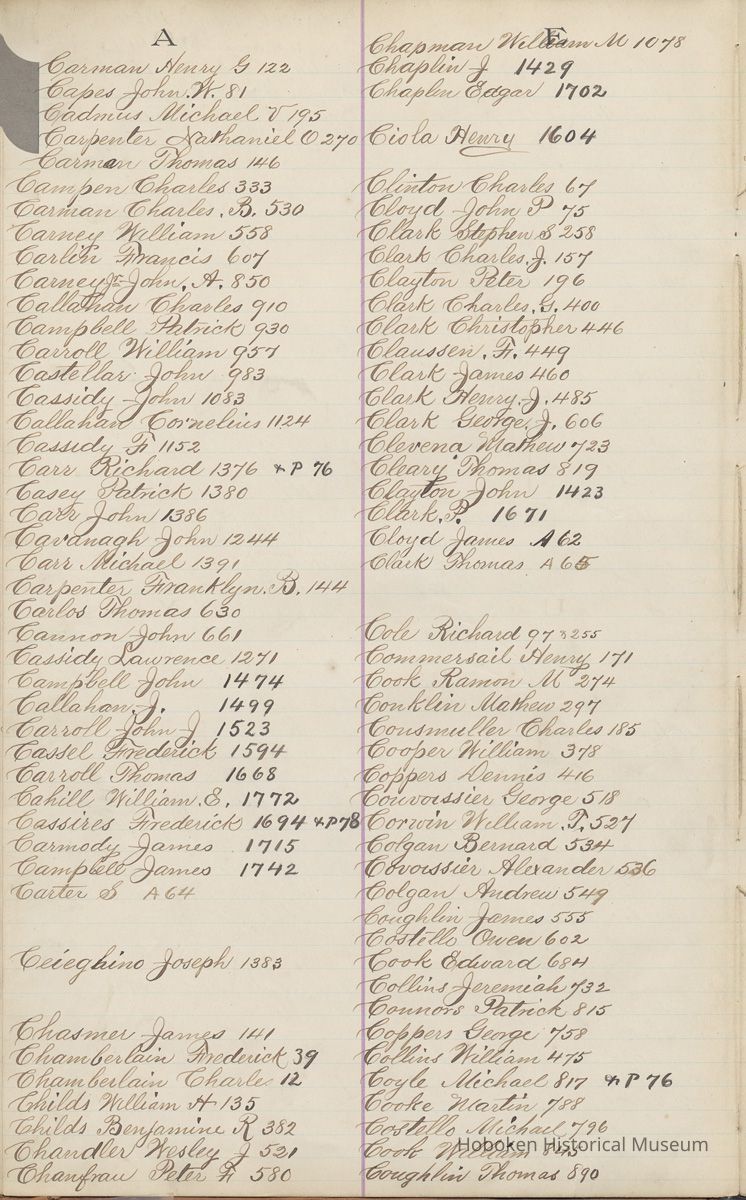 A
Carman Henry G 122
Capes John. W. 81
Cadmus Michael V 195
Carpenter Nathaniel O 270
Carman Thomas 146
Campen Charles 333
Carman Charles. B. 530
Carney William 558
Carlin Francis 607
Carney Jr John. A. 850
Callahan Charles 910
Campbell Patrick 930
Carroll William 957
Castellar John 983
Cassidy John 1083
Callahan Cornelius 1124
Cassidy F 1152
Carr Richard 1376 & P 76
Casey Patrick 1380
Carr John 1386
Cavanagh John 1244
Carr Michael 1391
Carpenter Franklyn. B. 144
Carlos Thomas 630
Cannon John 661
Cassidy Lawrence 1271
Campbell John 1474
Callahan. J. 1499
Carroll John J 1523
Cassel Frederick 1594
Carroll Thomas 1668
Cahill William. E. 1772
Cassires Frederick 1694 & P 78
Carmody James 1715
Campbell James 1742
Carter S A 64
Ceieghino Joseph 1383
Chasmer James 141
Chamberlain Frederick 39
Chamberlain Charles 12
Childs William H 135
Childs Benjamine R 382
Chandler Wesley J 521
Chanfrau Peter F 580
E
Chapman William M 1078
Chaplin J 1429
Chaplen Edgar 1702
Ciola Henry 1604
Clinton Charles 67
Cloyd John P 75
Clark Stephen S 258
Clark Charles. J. 157
Clayton Peter 196
Clark Charles. G. 400
Clark Christopher 446
Claussen. F. 449
Clark James 460
Clark Henry. J. 485
Clark George. J. 606
Clevena Mathew 723
Cleary Thomas 819
Clayton John 1423
Clark. P. 1671
Cloyd James A 62
Clark Thomas A 65
Cole Richard 97 & 255
Commersail Henry 171
Cook Ramon M 274
Conklin Mathew 297
Consmuller Charles 185
Cooper William 378
Coppers Dennis 416
Couvoissier George 518
Corwin William. T. 527
Colgan Bernard 534
Covoissier Alexander 536
Colgan Andrew 549
Coughlin James 555
Costello Owen 602
Cook Edward 684
Collins Jeremiah 732
Connors Patrick 815
Coppers George 758
Collins William 475
Coyle Michael 817 & P 76
Cooke Martin 788
Costello Michael 796
Cook William
Coughlin Thomas 890
Hoboken Historical Museum